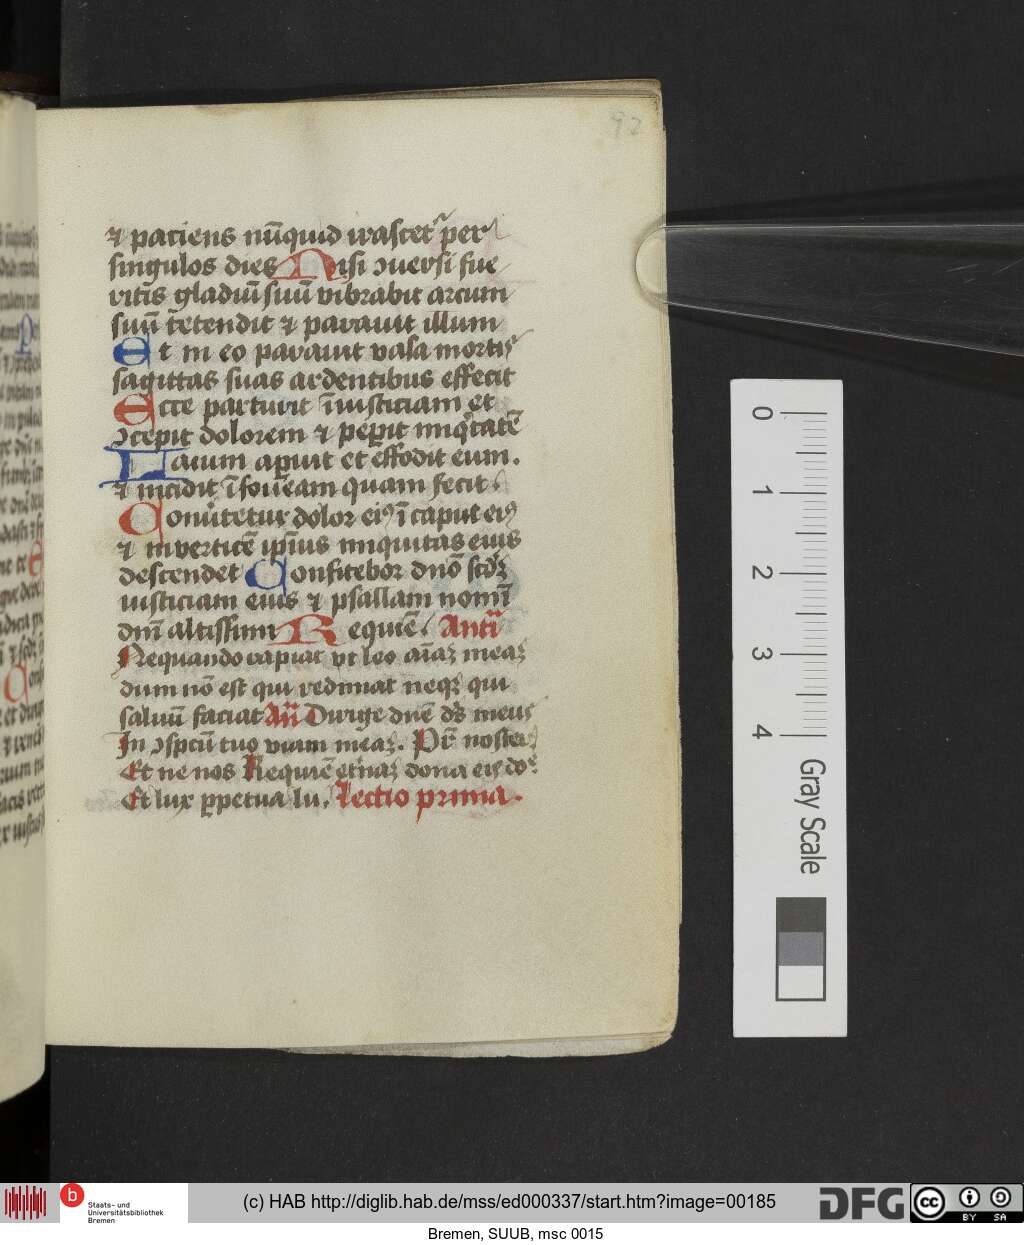 92
⁊ paciens nūquid irascet᷑ per
singulos dies Nisi ɔuersi fue
ritis gladiū suū vibrabit arcum
suū tetendit ⁊ parauit illum
Et in eo parauit vasa mortis
sagittas suas ardentibus effecit
Ecce parturit īiusticiam et
ɔcepit dolorem ⁊ peꝑit iniqͥtatē
Lacum aꝑuit et effodit eum.
⁊ incidit ī foueam quam fecit.
Conūtetur dolor eiꝰ ī caput eiꝰ
⁊ in verticē ip̄ius iniquitas eius
descendet Confitebor dn̄o scd̄ꝫ
iusticiam eius ⁊ psallam nomī
dn̄i altissimi Requiē. Antī
Nequando rapiat vt leo aīaꝫ meaꝫ
dum nō est qui redimat neqꝫ qui
saluū faciat An̄ Dirige dn̄e ds̄ meus
In ɔspcū tuo viam meaꝫ. Pr̄ noster
Et ne nos Requiē et'naꝫ dona eis do
Et lux ꝑpetua lu. Lectio prima.
0
1
2
3
4
Gray Scale
b
Staats- und
Universitätsbibliothek
Bremen
(c) HAB http://diglib.hab.de/mss/ed000337/start.htm?image=00185
DFG
cc
BY SA
Bremen, SUUB, msc 0015